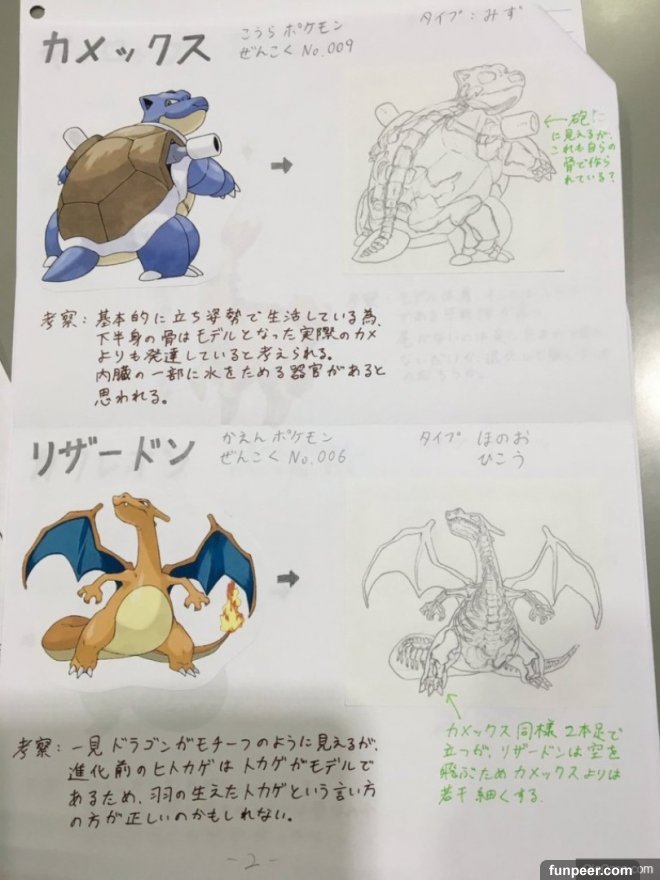 カメックス
こうらポケモン
ぜんこく No.009
タイプ：みず
←砲だ
に見えるが、
これも自らの
骨で作ら
れている？
考察：基本的に立ち姿勢で生活している為、
下半身の骨はモデルとなった実際のカメ
よりも発達していると考えられる。
内臓の一部に水をためる器官があると
思われる。
リザードン
かえんポケモン
ぜんこく No.006
タイプ ほのお
ひこう
カメックス同様2本足で
立つが、リザードンは空を
飛ぶためカメックスよりは
若干細くする.
考察：一見ドラゴンがモチーフのように見えるが、
進化前のヒトカゲはトカゲがモデルで
あるため、羽の生えたトカゲという言い方
の方が正しいのかもしれない。
-2-
funpeer.com